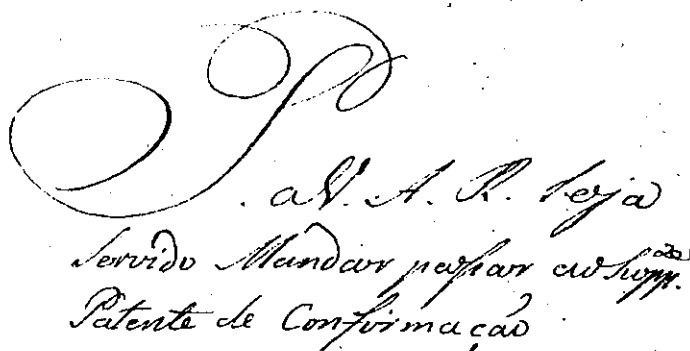 P. a V. A. R. seja
servido Mandar passar ao Supp.
Patente de Confirmação